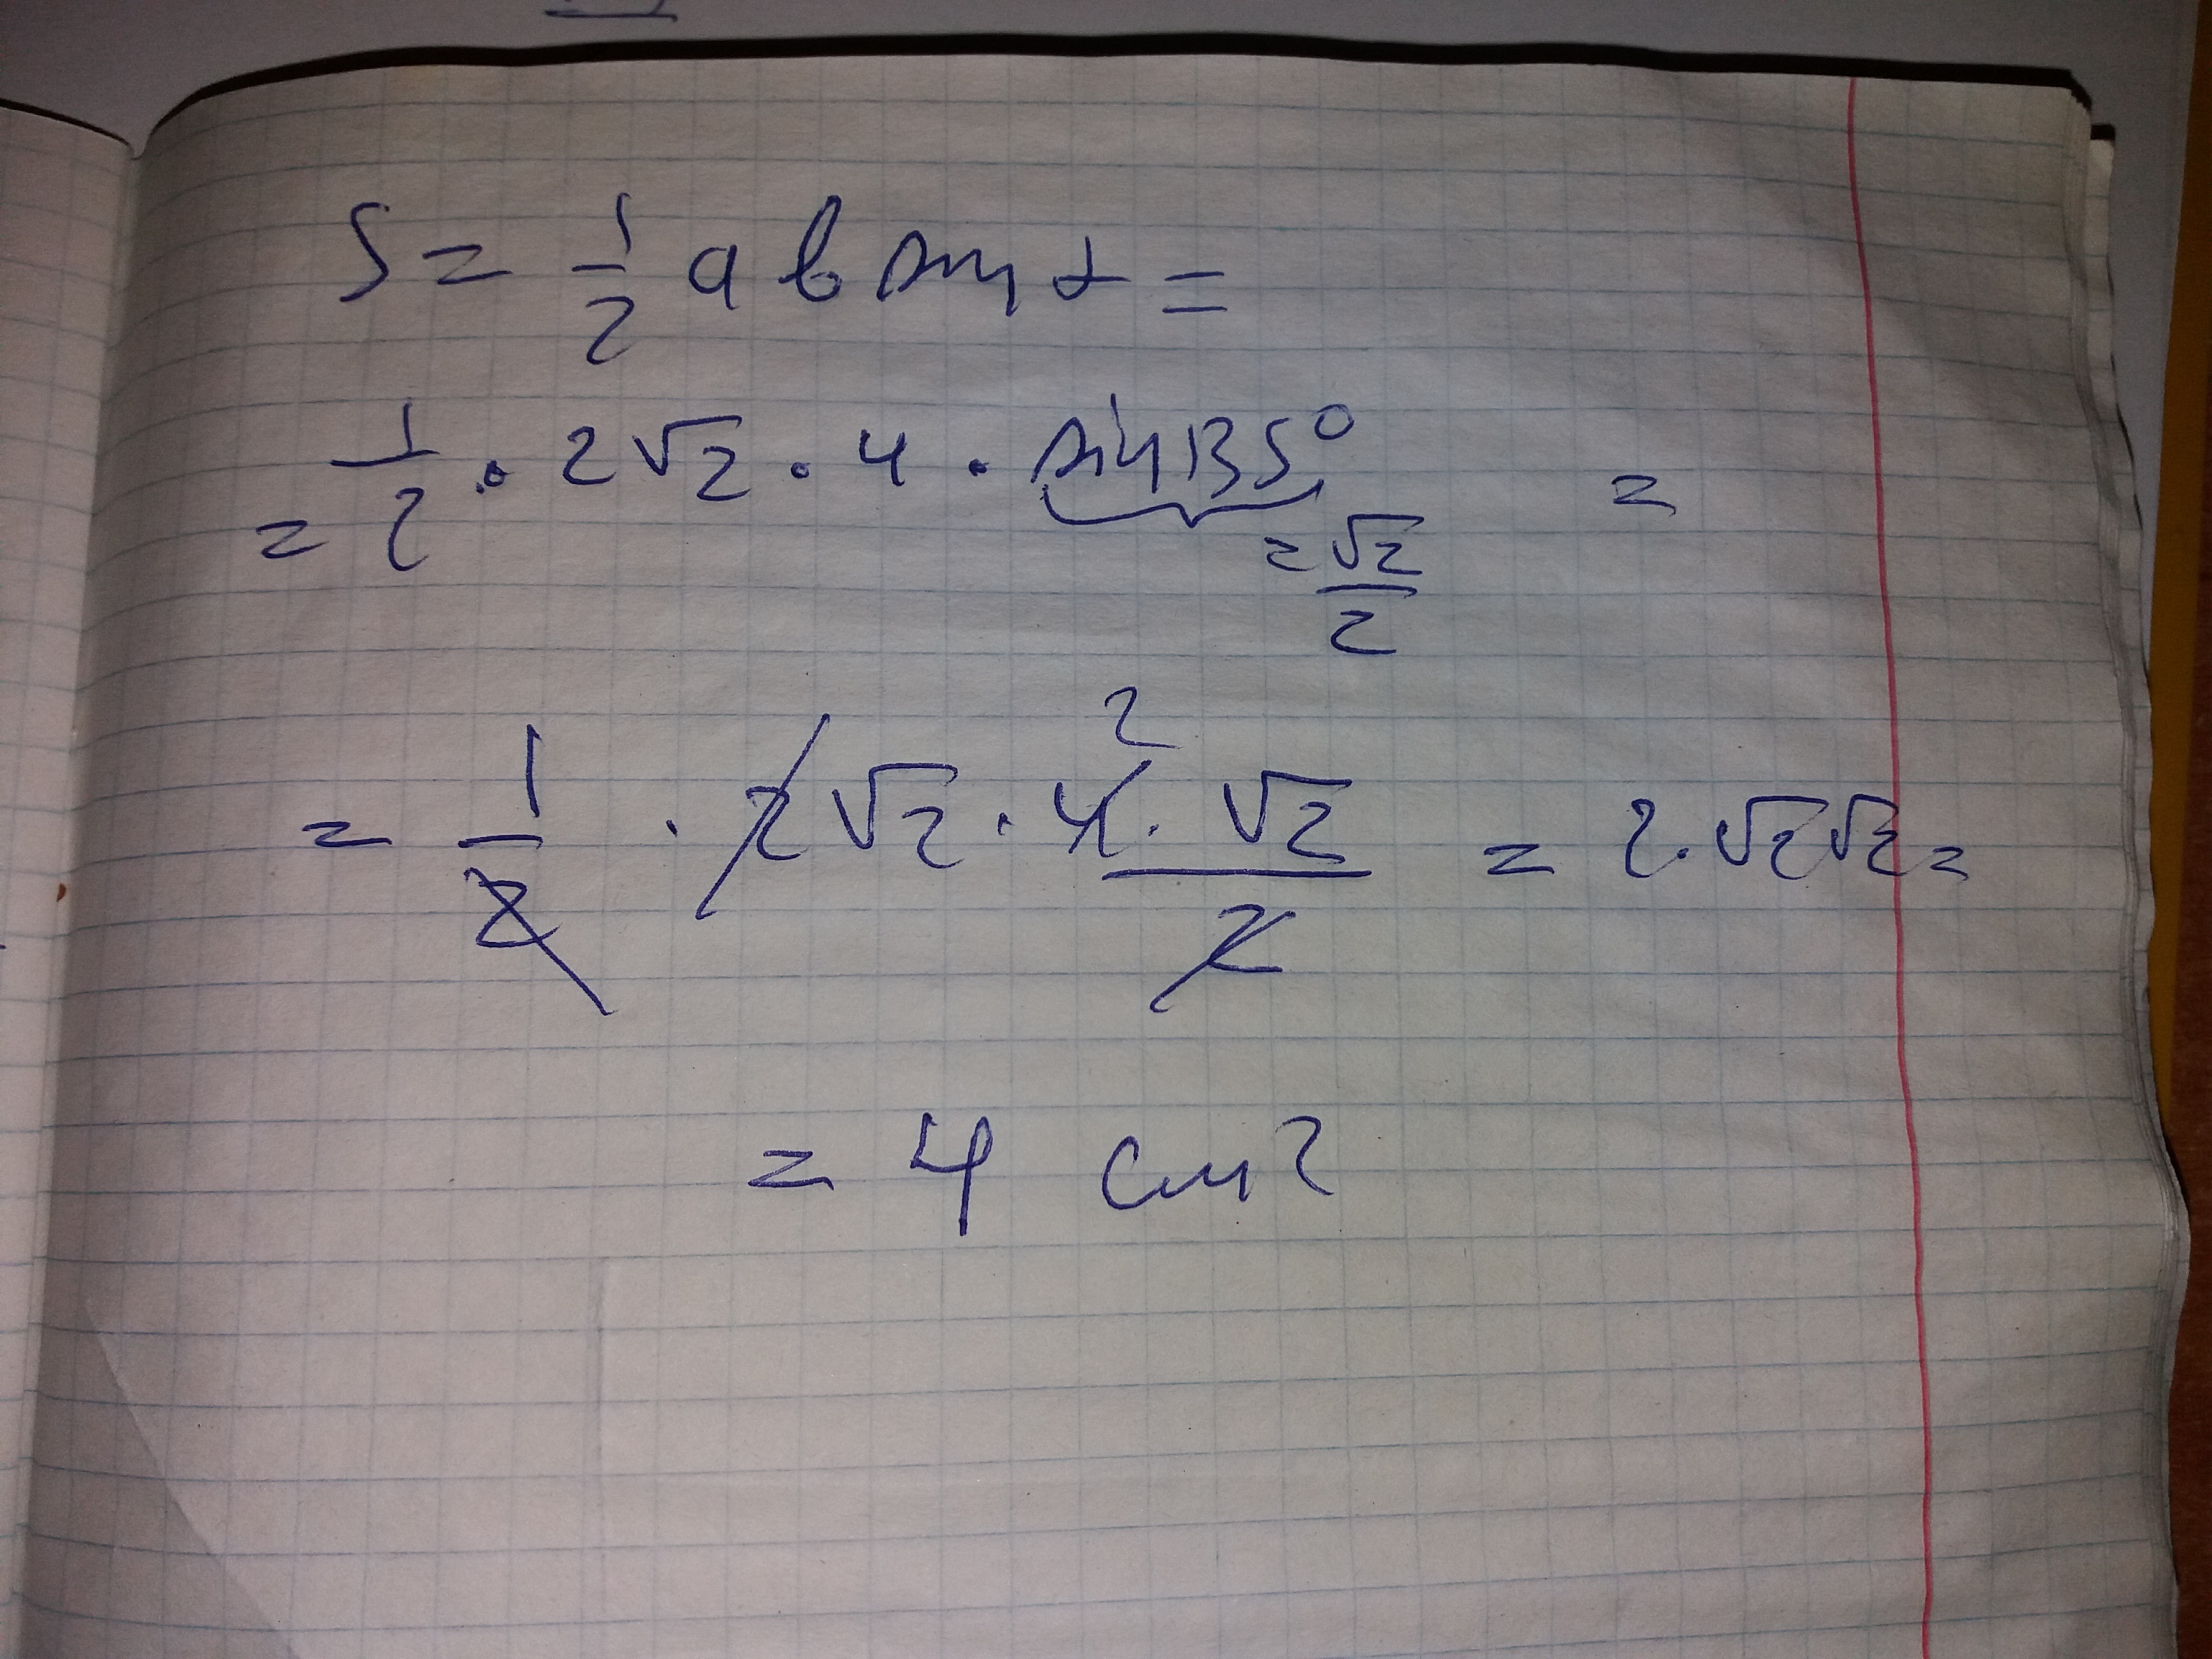 S = 1/2 a b sin α =
= 1/2 · 2√2 · 4 · sin 135° =
= √2/2
= 1/2 · 2√2 · 4 2 · √2/2 = 2 · √2 √2 =
= 4 см²